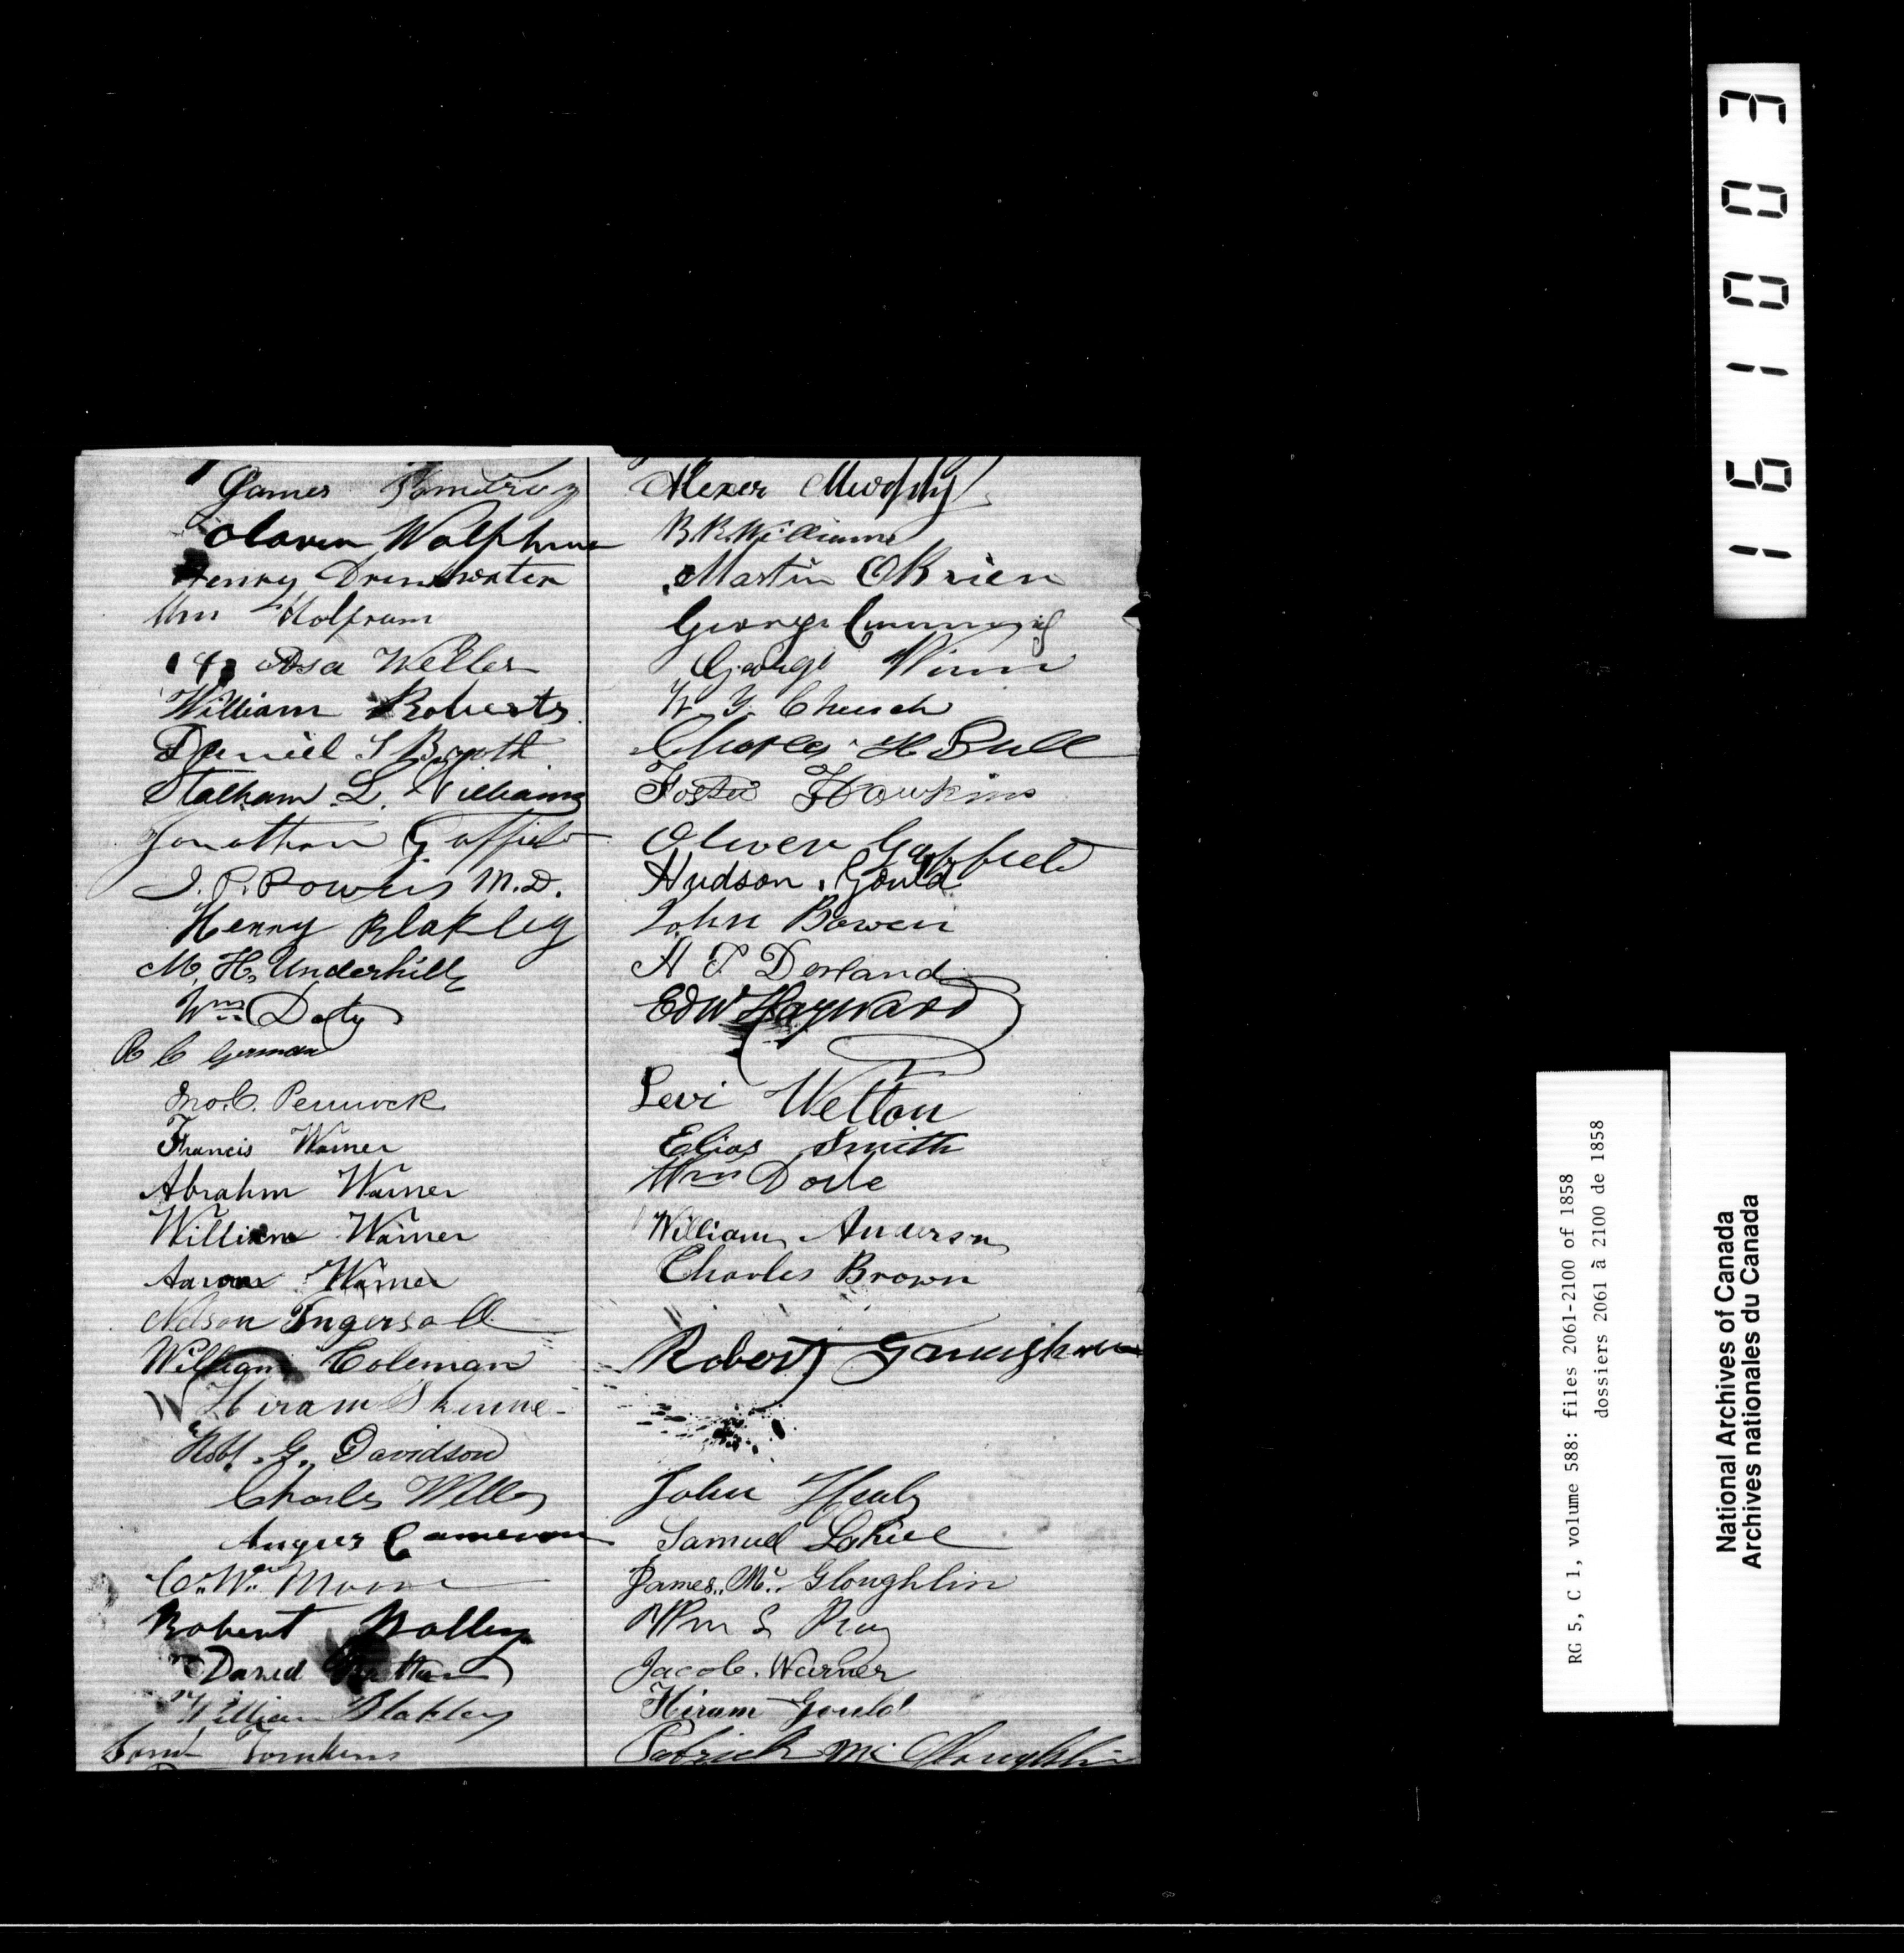 James Pomeroy
Olaven Wolphram
Henry Drinkwater
Wm Wolfram
Asa Weller
William Roberts
Daniel S Booth
Statham L. Williams
Jonathan Gaffield
J. P. Powers M.D.
Henry Blakley
M. H. Underhill
Wm Doty
R C German
Jno. C. Pennock
Francis Warner
Abrahm Warner
William Warner
Aaron Warner
Nelson Ingersoll
William Coleman
Hiram Skinne
Robt. G. Davidson
Charles Weller
Angus Cameron
C. Wm Moore
Robert Walley
David
William Blakley
Saml Tomkins
Alexer Murphy
B R Williams
Martin OBrien
George Cummings
George Winn
W. Y. Church
Charles H Bull
Foster Hawkins
Oliver Gaffield
Hudson Gould
John Bowen
A T Dorland
Edw Hayward
Levi Welton
Elias Smith
Wm Doyle
William Anderson
Charles Brown
Robert
John Healy
Samuel Lahiee
James Mc Gloughlin
Wm S Ray
Jacob Warner
Hiram Gould
Patrick Mc Gloughlin
161003
RG 5, C 1, volume 588: files 2061-2100 of 1858
dossiers 2061 à 2100 de 1858
National Archives of Canada
Archives nationales du Canada